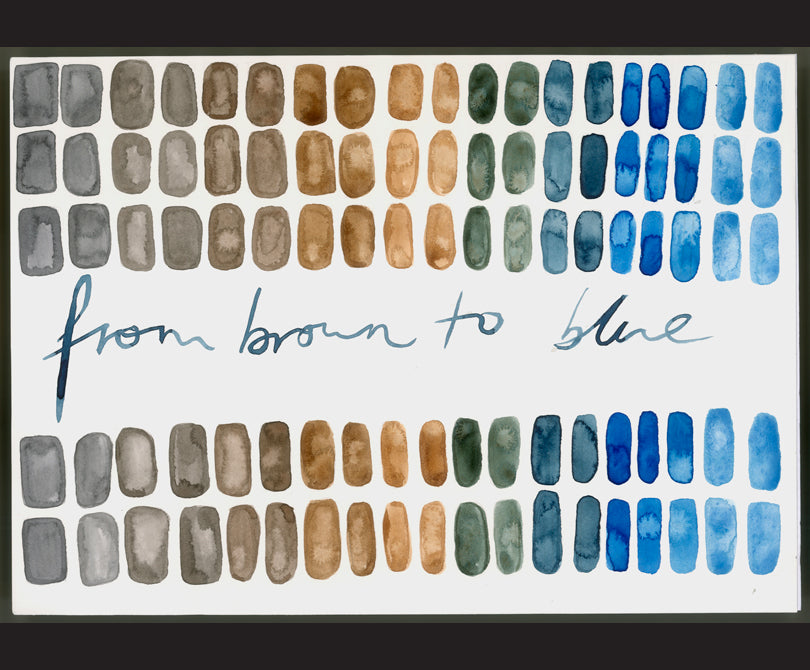 from brown to blue